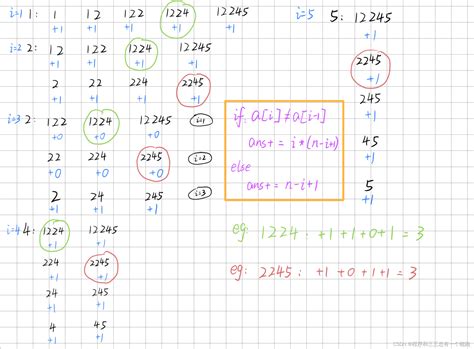 i=1 1: 1 12 122 1224 12245
+1 +1 +1 +1 +1
i=2 2: 12 122 1224 12245
+1 +1 +1 +1
2 22 224 2245
+1 +1 +1 +1
i=3 2: 122 1224 12245 i=1
+0 +0 +0
22 224 2245 i=2
+0 +0 +0
2 24 245 i=3
+1 +1 +1
i=4 4: 1224 12245
+1 +1
224 2245
+1 +1
24 245
+1 +1
4 45
+1 +1
i=5 5: 12245
+1
2245
+1
245
+1
45
+1
5
+1
if a[i]≠a[i-1]
ans+= i*(n-i+1)
else
ans+= n-i+1
eg: 1224: +1+1+0+1=3
eg: 2245: +1+0+1+1=3